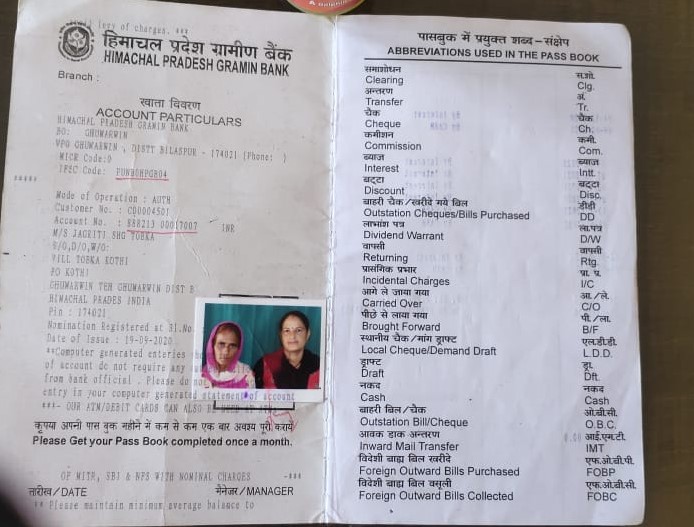 levy of charges. ***
हिमाचल प्रदेश ग्रामीण बैंक
HIMACHAL PRADESH GRAMIN BANK
Branch :
खाता विवरण
ACCOUNT PARTICULARS
HIMACHAL PRADESH GRAMIN BANK
BO: GHUMARWIN
VPO GHUMARWIN , DISTT BILASPUR - 174021 (Phone: )
MICR Code:0
IFSC Code: PUNB0HPGB04
*****
Mode of Operation : AUTH
Customer No. : CD0004501
Account No. : INR
M/S JAGRITI SHG TOBKA
S/O,D/O,W/O:
VILL TOBKA KOTHI
PO KOTHI
GHUMARWIN TEH GHUMARWIN DIST B
HIMACHAL PRADES INDIA
Pin : 174021
Nomination Registered at Sl.No.
Date of Issue : 19-09-2020
**Computer generated entries
of account do not require any
from bank official . Please do not
entry in your computer generated statement of account
***- OUR ATM/DEBIT CARDS CAN ALSO BE
कृपया अपनी पास बुक महीने में कम से कम एक बार अवश्य पूरी करायें
Please Get your Pass Book completed once a month.
OF MITR, SBI & NFS WITH NOMINAL CHARGES -***
तारीख/DATE मैनेजर/MANAGER
* Please maintain minimum average balance to
पासबुक में प्रयुक्त शब्द-संक्षेप
ABBREVIATIONS USED IN THE PASS BOOK
समाशोधन स.शो.
Clearing Clg.
अन्तरण अं.
Transfer Tr.
चैक चैक
Cheque Ch.
कमीशन कमी.
Commission Com.
ब्याज ब्याज
Interest Intt.
बट्टा बट्टा
Discount Disc.
बाहरी चैक/खरीदे गये बिल डीडी
Outstation Cheques/Bills Purchased DD
लाभांश पत्र ला.पत्र
Dividend Warrant D/W
वापसी वापसी
Returning Rtg.
प्रासंगिक प्रभार प्रा. प्र.
Incidental Charges I/C
आगे ले जाया गया आ./ले.
Carried Over C/O
पीछे से लाया गया पी./ला.
Brought Forward B/F
स्थानीय चैक/मांग ड्राफ्ट एल.डी.डी.
Local Cheque/Demand Draft L.D.D.
ड्राफ्ट ड्रा.
Draft Dft.
नकद नकद
Cash Cash
बाहरी बिल/चैक ओ.बी.सी.
Outstation Bill/Cheque O.B.C.
आवक डाक अन्तरण आई.एम.टी.
Inward Mail Transfer IMT
विदेशी बाह्य बिल खरीदे एफ.ओ.बी.पी.
Foreign Outward Bills Purchased FOBP
विदेशी बाह्य बिल वसूली एफ.ओ.बी.सी.
Foreign Outward Bills Collected FOBC